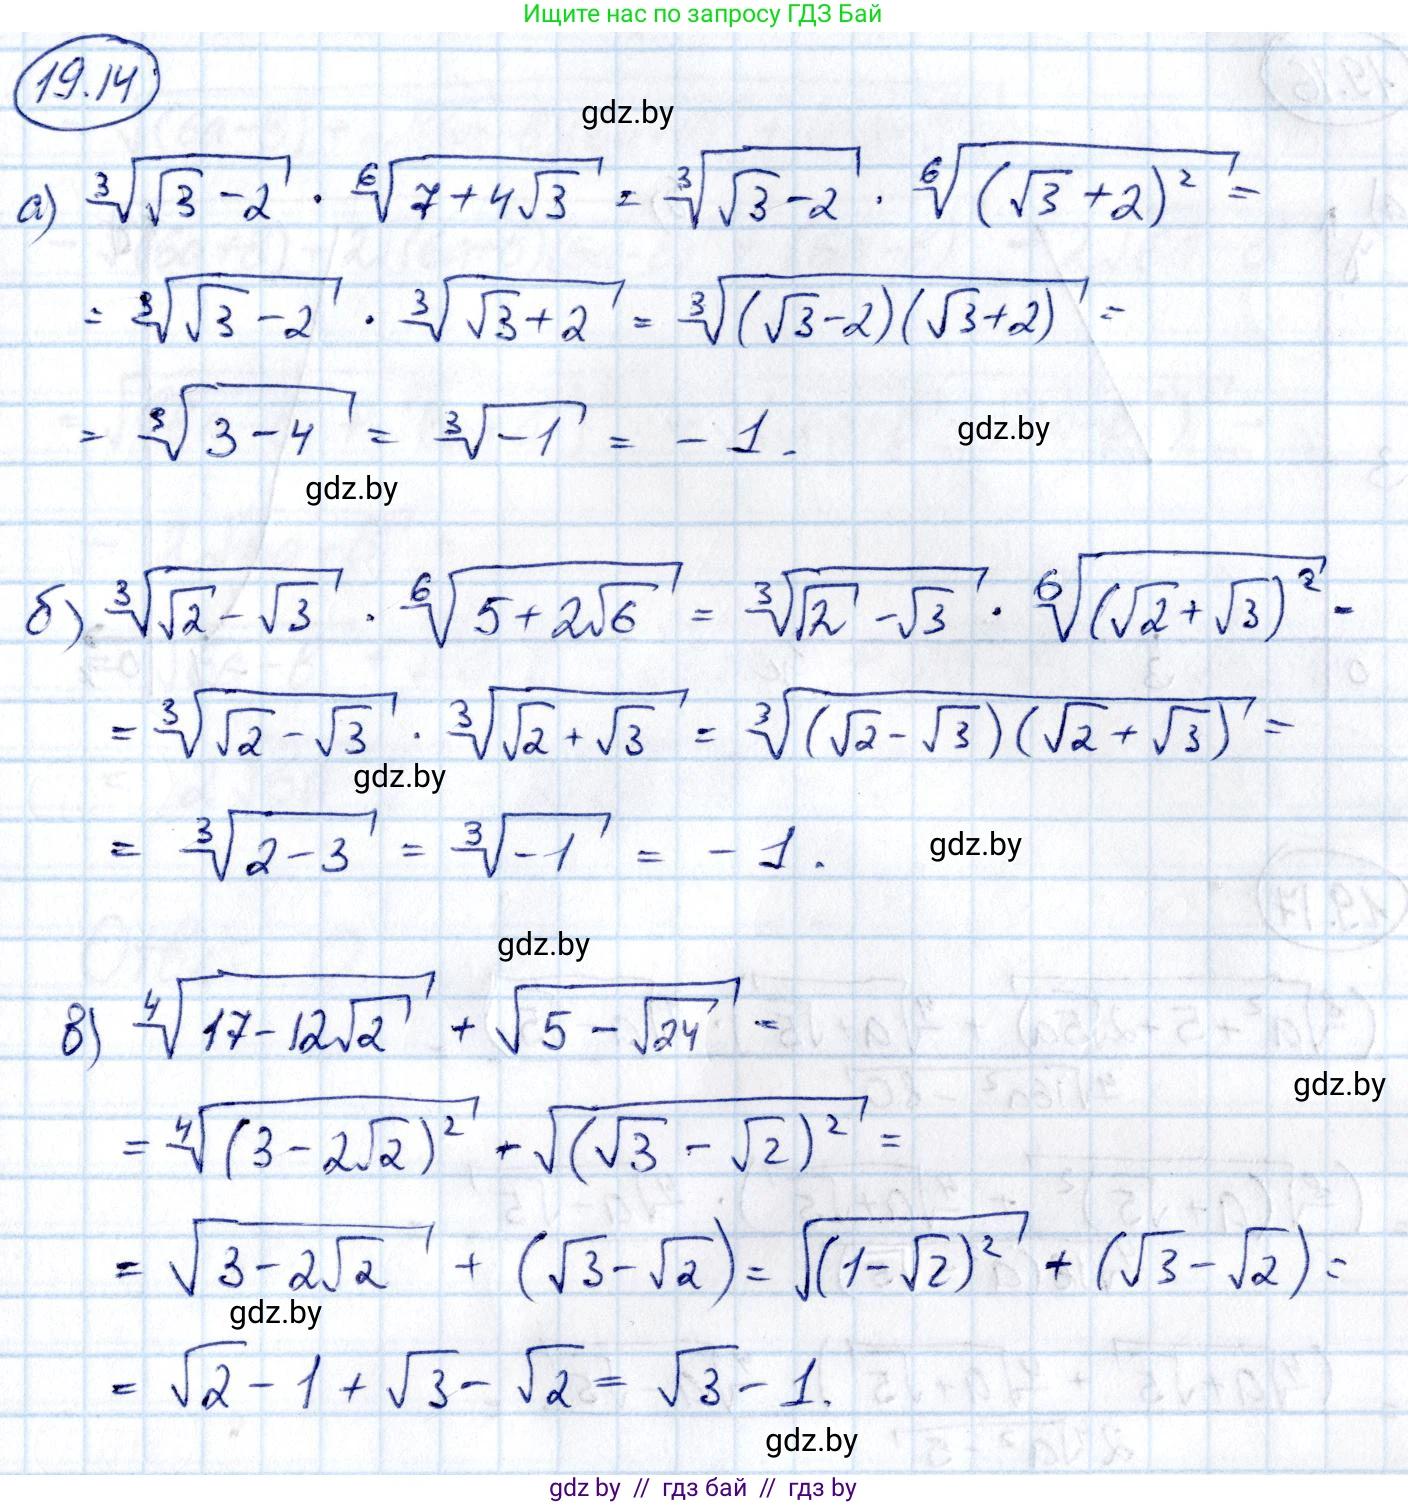 Ищите нас по запросу ГДЗ Бай
19.14
gdz.by
а) ∛(√3 - 2) · ⁶√(7 + 4√3) = ∛(√3 - 2) · ⁶√((√3 + 2)²) =
= ∛(√3 - 2) · ∛(√3 + 2) = ∛((√3 - 2)(√3 + 2)) =
= ∛(3 - 4) = ∛(-1) = - 1.
gdz.by
gdz.by
б) ∛(√2 - √3) · ⁶√(5 + 2√6) = ∛(√2 - √3) · ⁶√((√2 + √3)²) =
= ∛(√2 - √3) · ∛(√2 + √3) = ∛((√2 - √3)(√2 + √3)) =
gdz.by
= ∛(2 - 3) = ∛(-1) = - 1.
gdz.by
gdz.by
в) ⁴√(17 - 12√2) + √(5 - √24) =
gdz.by
= ⁴√((3 - 2√2)²) + √((√3 - √2)²) =
= √(3 - 2√2) + (√3 - √2) = √((1 - √2)²) + (√3 - √2) =
gdz.by
= √2 - 1 + √3 - √2 = √3 - 1.
gdz.by
gdz.by // гдз бай // гдз by